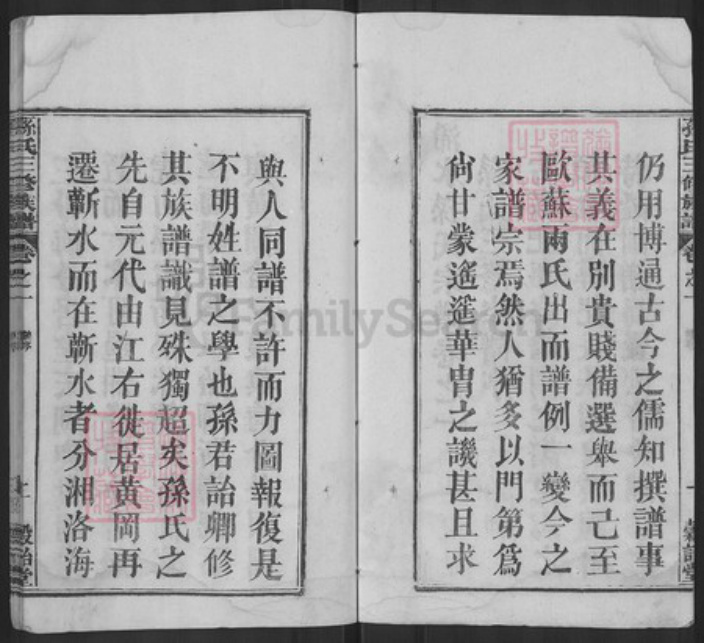 仍用博通古今之儒知撰譜事
其義在別貴賤備選舉而已至
歐蘇兩氏出而譜例一變今之
家譜宗焉然人猶多以門第爲
尙甘蒙遙遥華胄之譏甚且求
與人同譜不許而力圖報復是
不明姓譜之學也孫君詒卿修
其族譜識見殊獨超矣孫氏之
先自元代由江右徙居黃岡再
遷蘄水而在蘄水者分湘洛海
孫氏三修族譜
卷之一
詒堂
FamilySearch